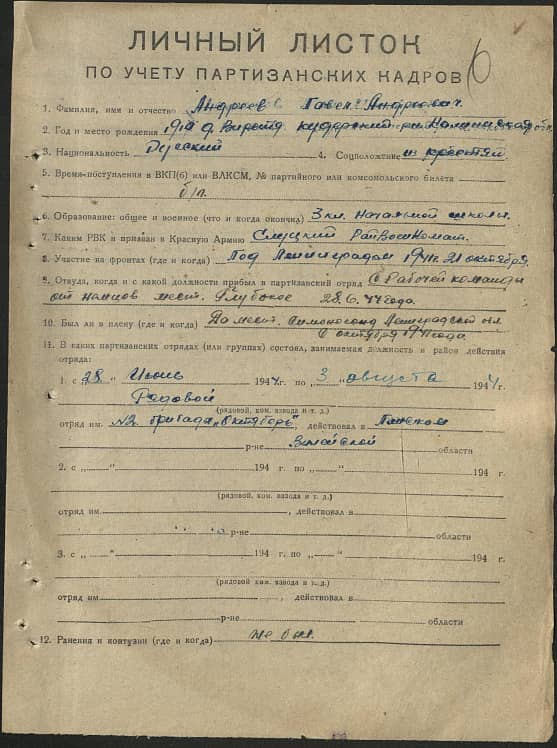 6
ЛИЧНЫЙ ЛИСТОК
ПО УЧЕТУ ПАРТИЗАНСКИХ КАДРОВ
1. Фамилия, имя и отчество Андреев Павел Андреевич
2. Год и место рождения
3. Национальность Русский 4. Соцположение из крестьян
5. Время поступления в ВКП(б) или ВЛКСМ, № партийного или комсомольского билета
б/п.
6. Образование: общее и военное (что и когда окончил) 3 кл. начальной школы.
7. Каким РВК и призван в Красную Армию Слуцкий Райвоенкомат.
8. Участие на фронтах (где и когда) Под Ленинградом 1941г. 21 октября.
9. Откуда, когда и с какой должности прибыл в партизанский отряд с Рабочей команды
от немцев мест. Глубокое 28.6.44 года.
10. Был ли в плену (где и когда) Да мест. Ленинградской обл.
в октября 1941 года
11. В каких партизанских отрядах (или группах) состоял, занимаемая должность и район действия
отряда:
1. с „28" Июнь 1944 г. по „3" августа 1944 г.
Рядовой
(рядовой, ком. взвода и т. д.)
отряд им. №2 бригада „Октябрь", действовал в
р-не области
2. с „ " 194 г. по „ " 194 г.
(рядовой, ком. взвода и т. д.)
отряд им. , действовал в
р-не области
3. с „ " 194 г. по „ " 194 г.
(рядовой, ком. взвода и т. д.)
отряд им. , действовал в
р-не области
12. Ранения и контузии (где и когда) не был.